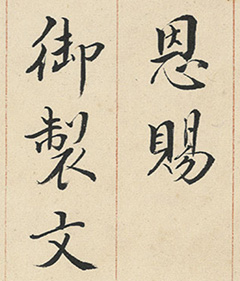 恩賜
御製文